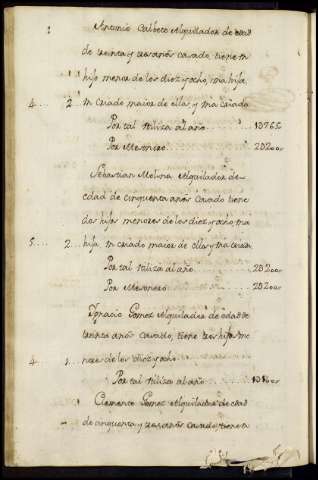 Antonio Calbete Alquilador de edad
de treinta y tres años casado, tiene un
hijo menor de los diez y ocho, una hija
4.... 2.. un criado maior de ellos, y una criada
Por tal utiliza al año ....... 1376
Por Mesonero ....... 2D200
Sebastian Molina Alquilador de
edad de cinquenta años casado tiene
dos hijos menores de los diez y ocho, una
5.... 2.. hija un criado maior de ellos y una criada
Por tal utiliza al año ....... 2D200
Por Mesonero ....... 2D200
Ygnacio Gomez Alquilador de edad de
treinta años casado, tiene tres hijos me
4 ..... 1.. nores de los diez y ocho
Por tal utiliza al año
Clemente Gomez Alquilador de edad
de cinquenta y tres años casado, tiene